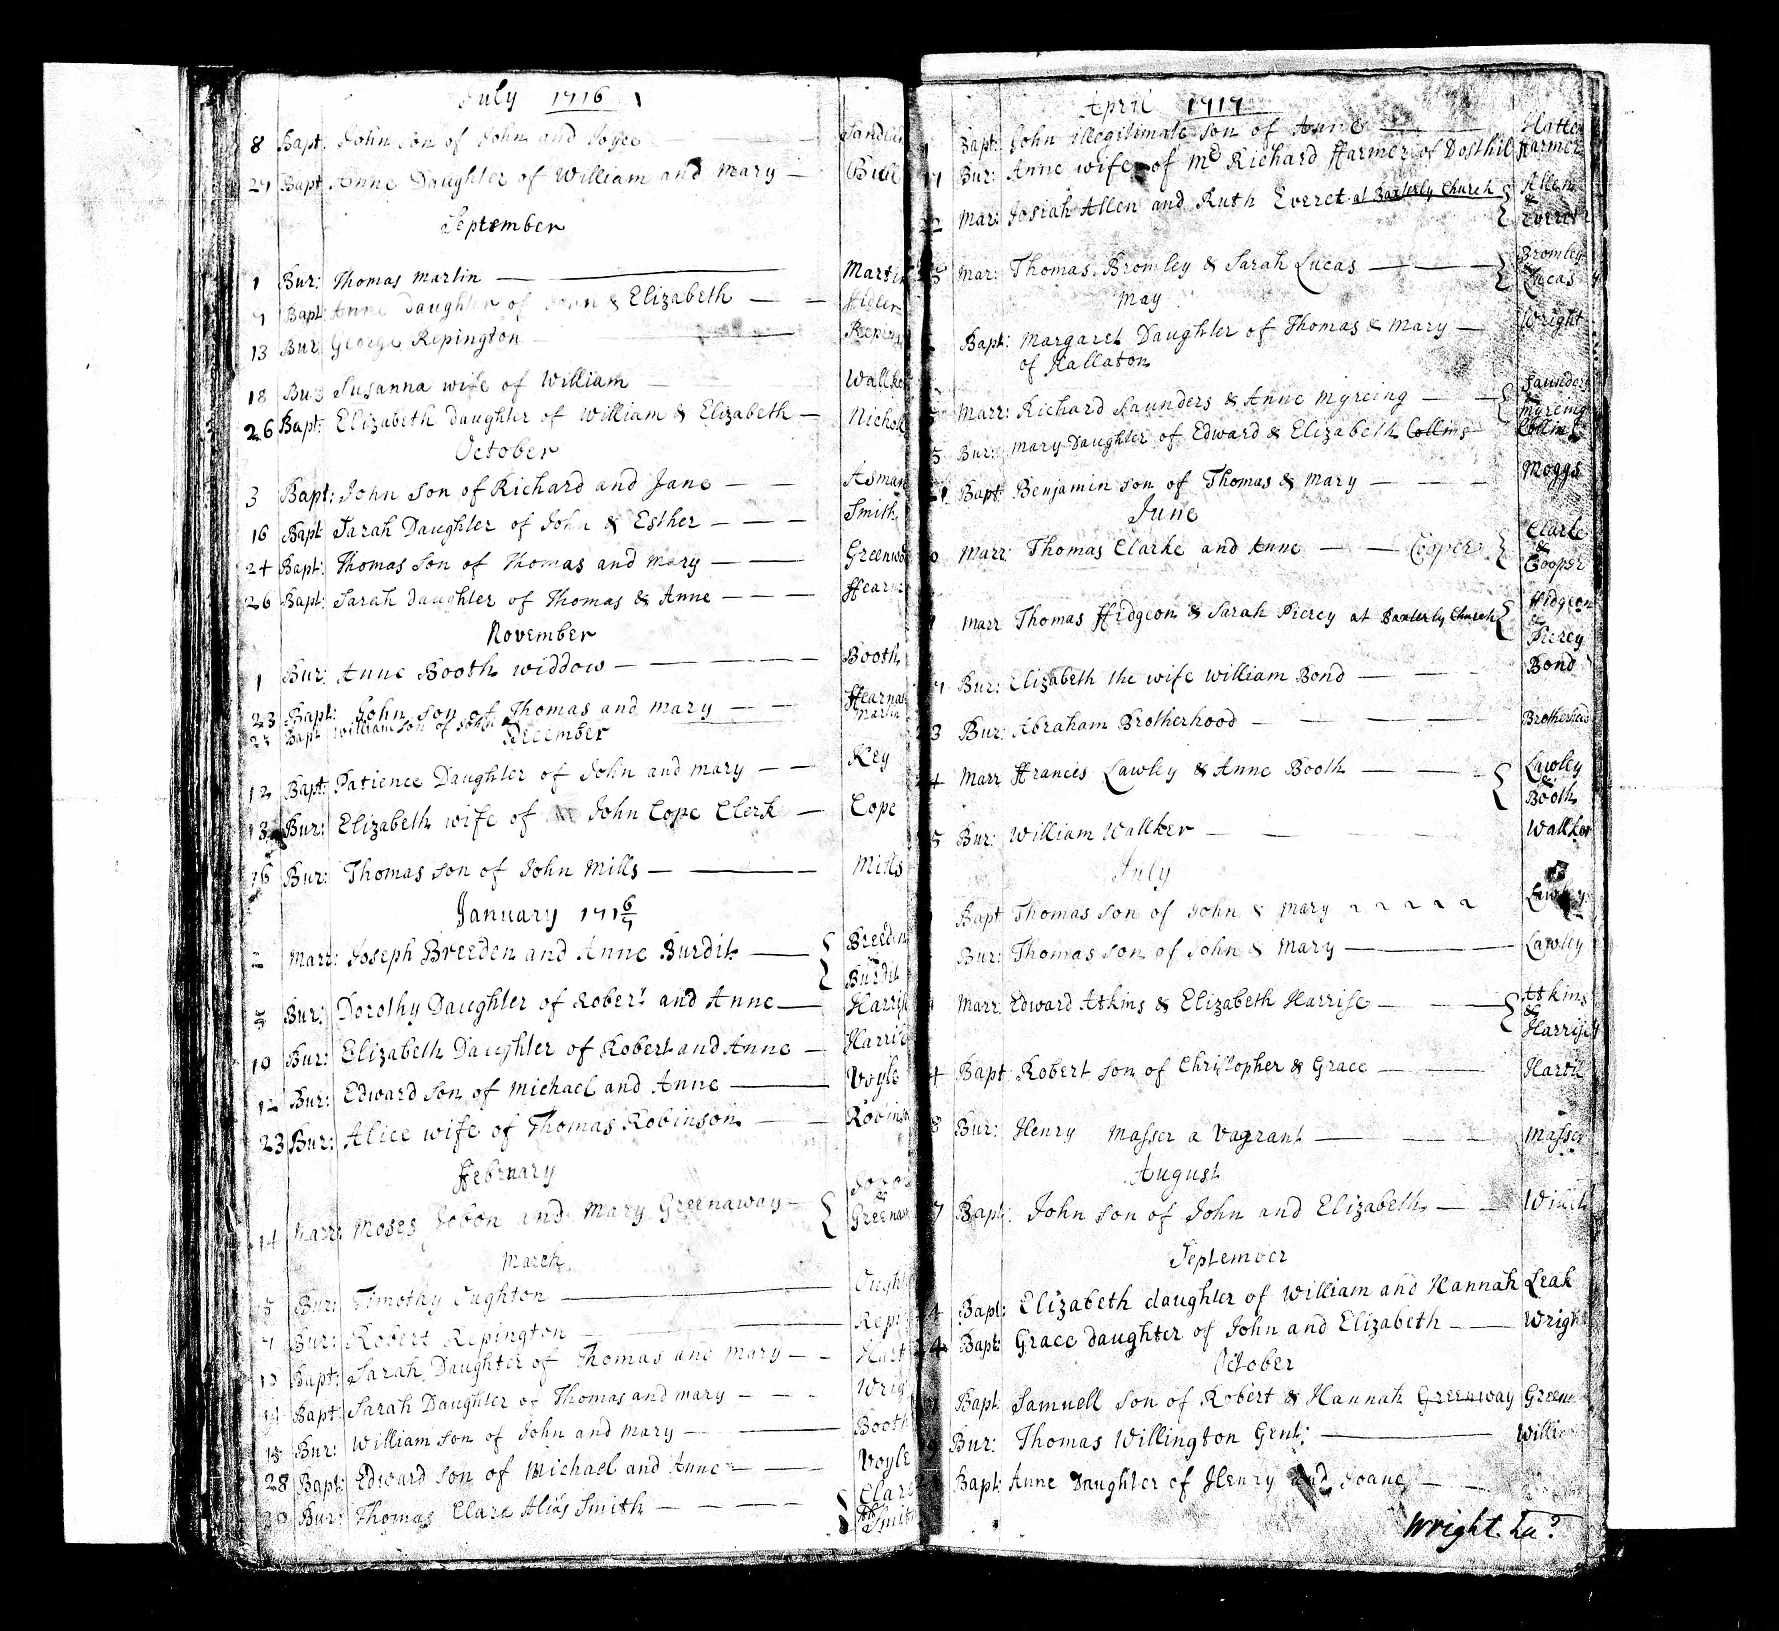 July 1716
8 Bapt: John son of John and Joyce
27 Bapt Anne Daughter of William and Mary — Bull
September
1 Bur: Thomas Martin — Martin
7 Bapt Anne Daughter of John & Elizabeth —
13 Bur George Repington —
18 Bur Susanna wife of William —
26 Bapt: Elizabeth Daughter of William & Elizabeth —
October
3 Bapt: John Son of Richard and Jane — Asman
16 Bapt Sarah Daughter of John & Esther — Smith
24 Bapt: Thomas Son of Thomas and Mary —
26 Bapt: Sarah daughter of Thomas & Anne —
November
1 Bur: Anne Booth widdow — Booth
23 Bapt: John son of Thomas and Mary —
Bapt William Son of John Martin
December
12 Bapt: Patience Daughter of John and Mary — Key
13 Bur: Elizabeth wife of John Cope Clerk — Cope
16 Bur: Thomas son of John Mills — Mills
January 171 6/7
2 Marr: Joseph Breeden and Anne Burdit — { Breeden & Burdit
Bur: Dorothy Daughter of Robert and Anne —
10 Bur: Elizabeth Daughter of Robert and Anne —
12 Bur: Edward Son of Michael and Anne — Voyle
23 Bur: Alice wife of Thomas Robinson —
ffebruary
14 Marr: Moses Jobon and Mary Greenaway — {
March
5 Bur: Timothy Oughton —
7 Bur: Robert Repington —
Bapt: Sarah Daughter of Thomas and Mary —
Bapt Sarah Daughter of Thomas and Mary —
18 Bur: William son of John and Mary — Booth
28 Bapt: Edward Son of Michael and Anne — Voyle
Bur: Thomas Clare Alias Smith — { Clare Als Smith
April 1717
Bapt: John illegitimate son of Anne —
Bur: Anne wife of Mr Richard ffarmer of Dosthil ffarmer
Mar: Josiah Allen and Ruth Everet at Baxterly Church { Allen & Everet
Mar: Thomas Bromley & Sarah Lucas — { Bromley & Lucas
May
Bapt: Margaret Daughter of Thomas & Mary — Wright
of Hallaton
Marr: Richard Saunders & Anne Myreing — { Saunders & Myreing
5 Bur: Mary Daughter of Edward & Elizabeth Collins Collins
Bapt Benjamin son of Thomas & Mary — Moggs
June
Marr: Thomas Clarke and Anne — Cooper { Clarke & Cooper
Marr Thomas ffidgeon & Sarah Piercy at Baxterly Church { ffidgeon & Piercy
Bur: Elizabeth the wife William Bond — Bond
Bur: Abraham Brotherhood — Brotherhood
Marr ffrances Lawley & Anne Booth — { Lawley & Booth
5 Bur: William Wallker — Wallker
July
Bapt Thomas son of John & Mary Lawley
Bur: Thomas son of John & Mary — Lawley
Marr Edward Atkins & Elizabeth Harrise — { Atkins & Harrise
4 Bapt Robert son of Christopher & Grace —
8 Bur: Henry Masser a Vagrant — Masser
August
7 Bapt: John son of John and Elizabeth —
September
4 Bapt: Elizabeth daughter of William and Hannah Leak
24 Bapt: Grace daughter of John and Elizabeth — Wright
October
Bapt Samuell son of Robert & Hannah Greenway
Bur: Thomas Willington Gent: —
Bapt: Anne Daughter of Henry and Joane —
Wright